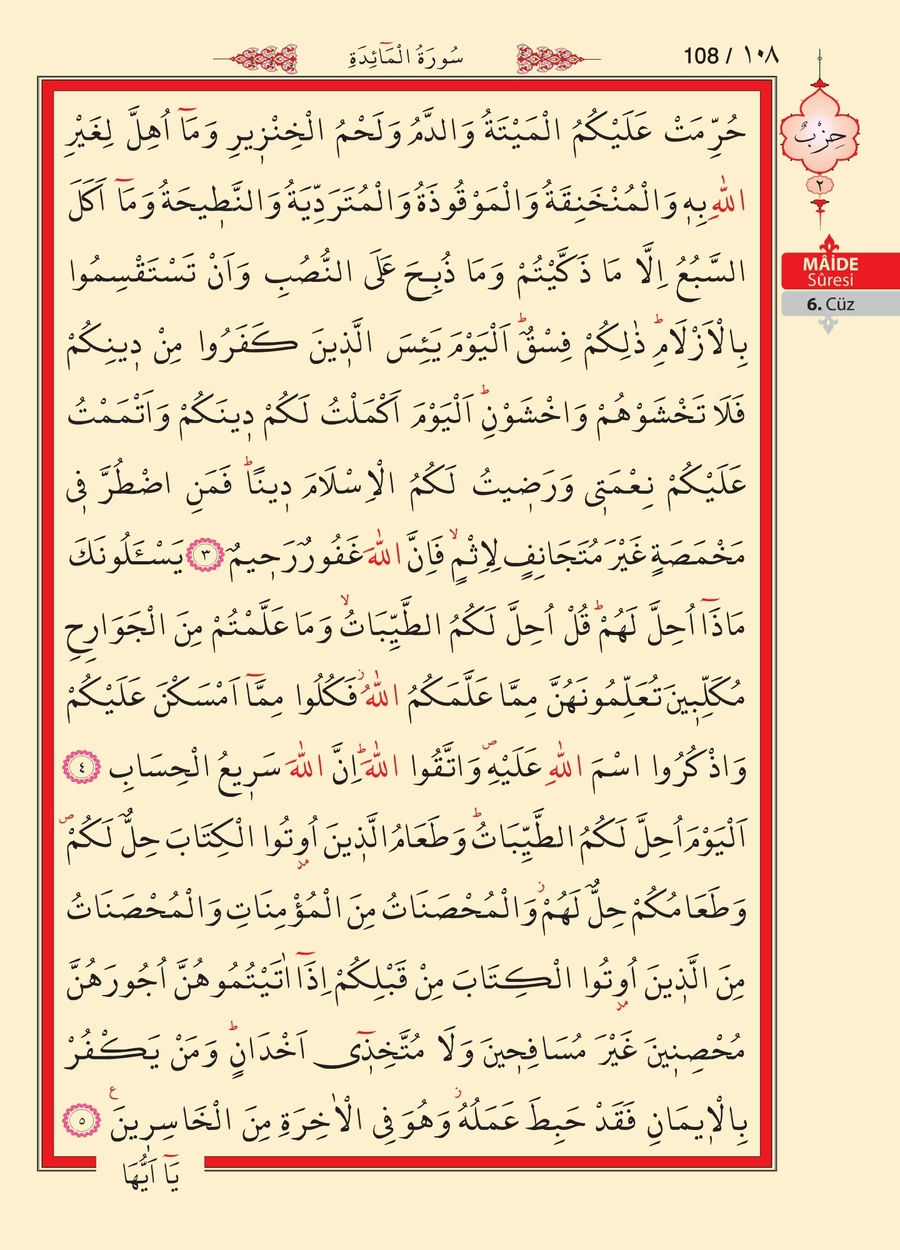 سُورَةُ الْمَٓائِدَةِ
108 / ١٠٨
حِزْبٌ
٢
MÂİDE
Sûresi
6. Cüz
حُرِّمَتْ عَلَيْكُمُ الْمَيْتَةُ وَالدَّمُ وَلَحْمُ الْخِنْزٖيرِ وَمَٓا اُهِلَّ لِغَيْرِ
اللّٰهِ بِهٖ وَالْمُنْخَنِقَةُ وَالْمَوْقُوذَةُ وَالْمُتَرَدِّيَةُ وَالنَّطٖيحَةُ وَمَٓا اَكَلَ
السَّبُعُ اِلَّا مَا ذَكَّيْتُمْ وَمَا ذُبِحَ عَلَى النُّصُبِ وَاَنْ تَسْتَقْسِمُوا
بِالْاَزْلَامِؕ ذٰلِكُمْ فِسْقٌؕ اَلْيَوْمَ يَئِسَ الَّذٖينَ كَفَرُوا مِنْ دٖينِكُمْ
فَلَا تَخْشَوْهُمْ وَاخْشَوْنِؕ اَلْيَوْمَ اَكْمَلْتُ لَكُمْ دٖينَكُمْ وَاَتْمَمْتُ
عَلَيْكُمْ نِعْمَتٖى وَرَضٖيتُ لَكُمُ الْاِسْلَامَ دٖينًاؕ فَمَنِ اضْطُرَّ فٖى
مَخْمَصَةٍ غَيْرَ مُتَجَانِفٍ لِاِثْمٍۙ فَاِنَّ اللّٰهَ غَفُورٌ رَحٖيمٌ ﴿٣﴾ يَسْـَٔلُونَكَ
مَاذَٓا اُحِلَّ لَهُمْؕ قُلْ اُحِلَّ لَكُمُ الطَّيِّبَاتُۙ وَمَا عَلَّمْتُمْ مِنَ الْجَوَارِحِ
مُكَلِّبٖينَ تُعَلِّمُونَهُنَّ مِمَّا عَلَّمَكُمُ اللّٰهُؗ فَكُلُوا مِمَّٓا اَمْسَكْنَ عَلَيْكُمْ
وَاذْكُرُوا اسْمَ اللّٰهِ عَلَيْهِࣕ وَاتَّقُوا اللّٰهَؕ اِنَّ اللّٰهَ سَرٖيعُ الْحِسَابِ ﴿٤﴾
اَلْيَوْمَ اُحِلَّ لَكُمُ الطَّيِّبَاتُؕ وَطَعَامُ الَّذٖينَ اُوتُوا الْكِتَابَ حِلٌّ لَكُمْࣕ
وَطَعَامُكُمْ حِلٌّ لَهُمْؗ وَالْمُحْصَنَاتُ مِنَ الْمُؤْمِنَاتِ وَالْمُحْصَنَاتُ
مِنَ الَّذٖينَ اُوتُوا الْكِتَابَ مِنْ قَبْلِكُمْ اِذَٓا اٰتَيْتُمُوهُنَّ اُجُورَهُنَّ
مُحْصِنٖينَ غَيْرَ مُسَافِحٖينَ وَلَا مُتَّخِذٖٓى اَخْدَانٍؕ وَمَنْ يَكْفُرْ
بِالْاٖيمَانِ فَقَدْ حَبِطَ عَمَلُهُؗ وَهُوَ فِى الْاٰخِرَةِ مِنَ الْخَاسِرٖينَࣖ ﴿٥﴾
يَٓا اَيُّهَا